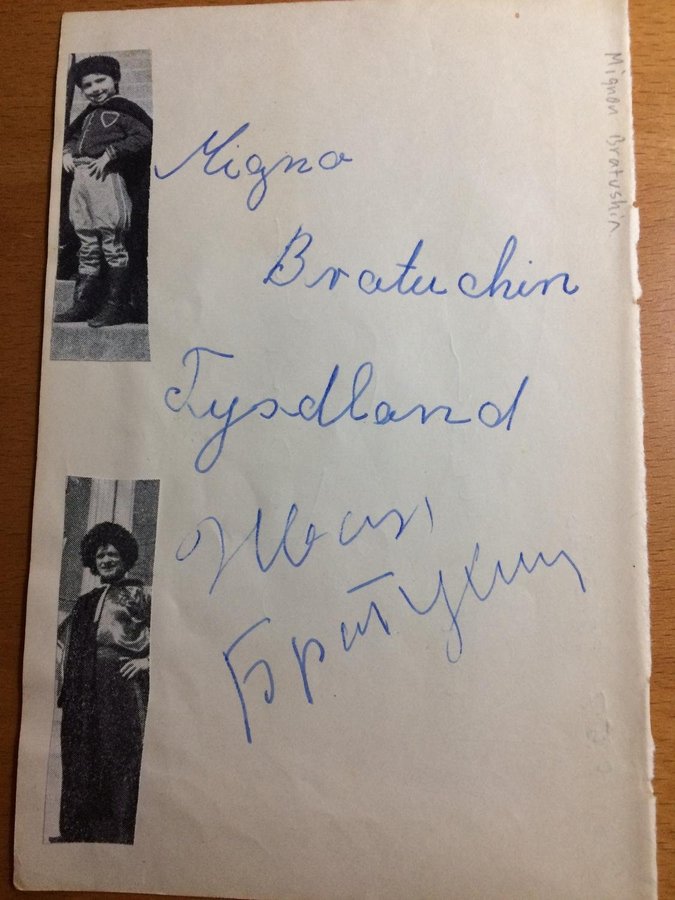 Migno
Bratuchin
Tysdland
Иван
Братухин
Mignon Bratushin